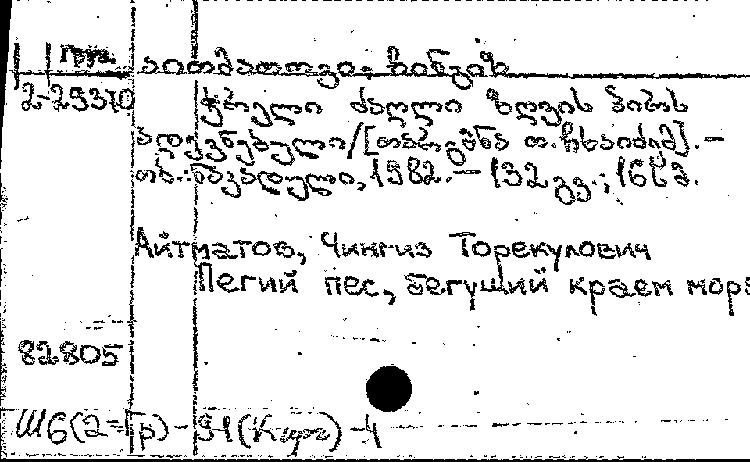 Груз.
აითმათოვი, ჩინგიზ
2-29370
ჭრელი ძაღლი ზღვის პირს
ადევნებული/[თარგმნა თ. ჩხაიძემ]. –
თბ.: ნაკადული, 1982. – 132 გვ.; 16 სმ.
Айтматов, Чингиз Торекулович
Пегий пес, бегущий краем моря
82805
Ш6(2=Гр)-91(Кирг)-4